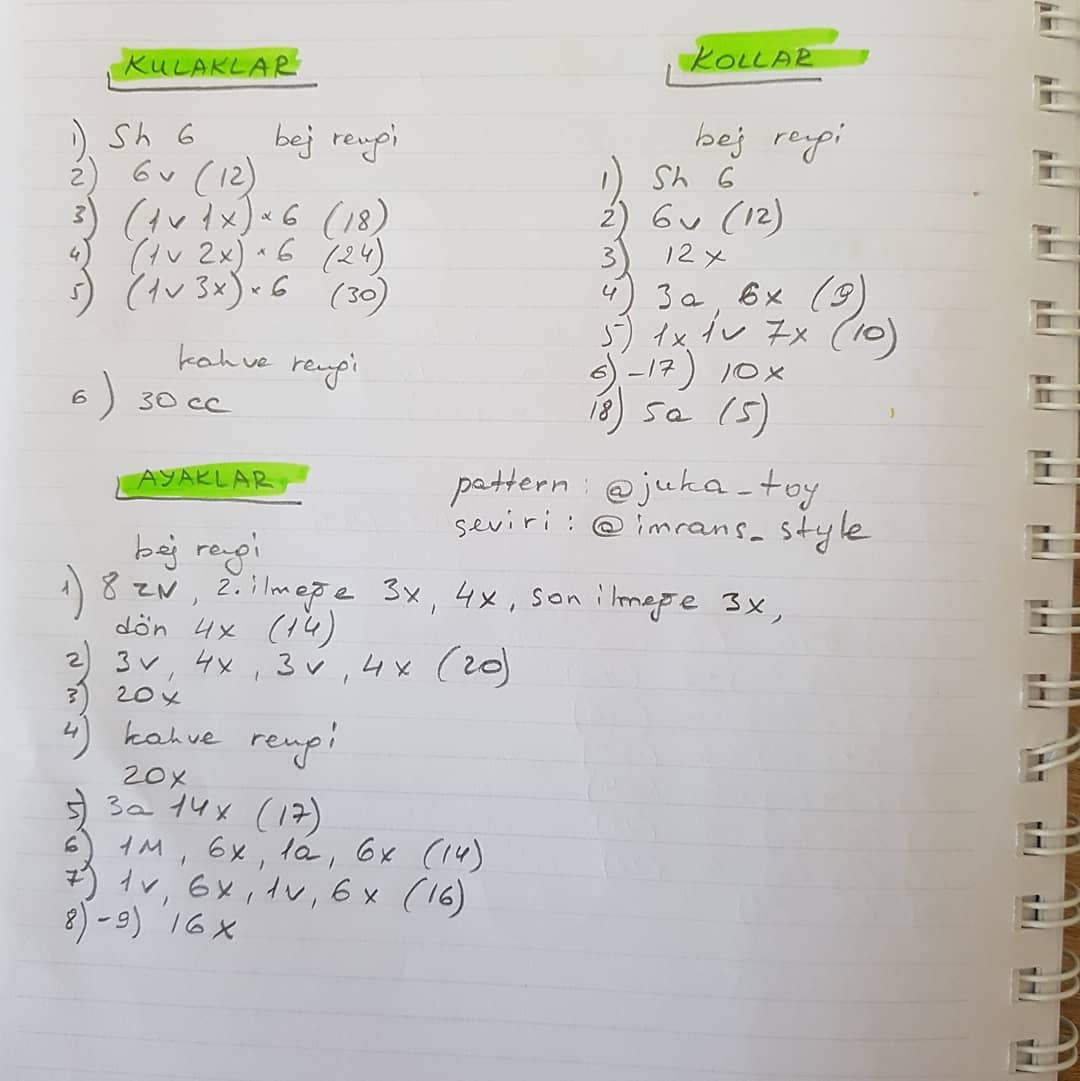 KULAKLAR
1) Sh 6 bej rengi
2) 6v (12)
3) (1v 1x) × 6 (18)
4) (1v 2x) × 6 (24)
5) (1v 3x) × 6 (30)
kahve rengi
6) 30 cc
KOLLAR
bej rengi
1) Sh 6
2) 6v (12)
3) 12x
4) 3a, 6x (9)
5) 1x 1v 7x (10)
6)-17) 10x
18) 5a (5)
pattern: @juka_toy
çeviri: @imrans_style
AYAKLAR
bej rengi
1) 8 zN, 2. ilmeğe 3x, 4x, son ilmeğe 3x,
dön 4x (14)
2) 3v, 4x, 3v, 4x (20)
3) 20x
4) kahve rengi
20x
5) 3a 14x (17)
6) 1M, 6x, 1a, 6x (14)
7) 1v, 6x, 1v, 6x (16)
8)-9) 16x